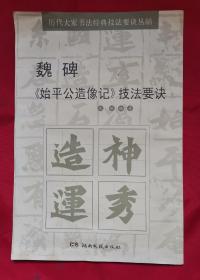 历代大家书法经典技法要诀丛帖
魏碑
《始平公造像记》技法要诀
造神
運秀
湖南美术出版社